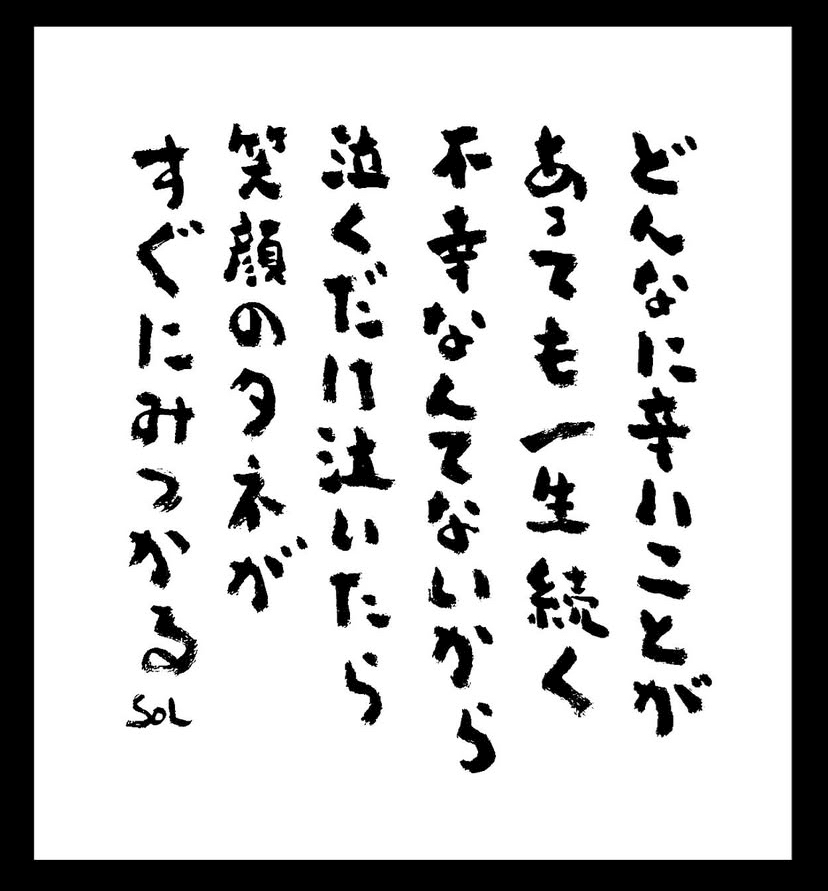 どんなに辛いことが
あっても一生続く
不幸なんてないから
泣くだけ泣いたら
笑顔のタネが
すぐにみつかる
SOL